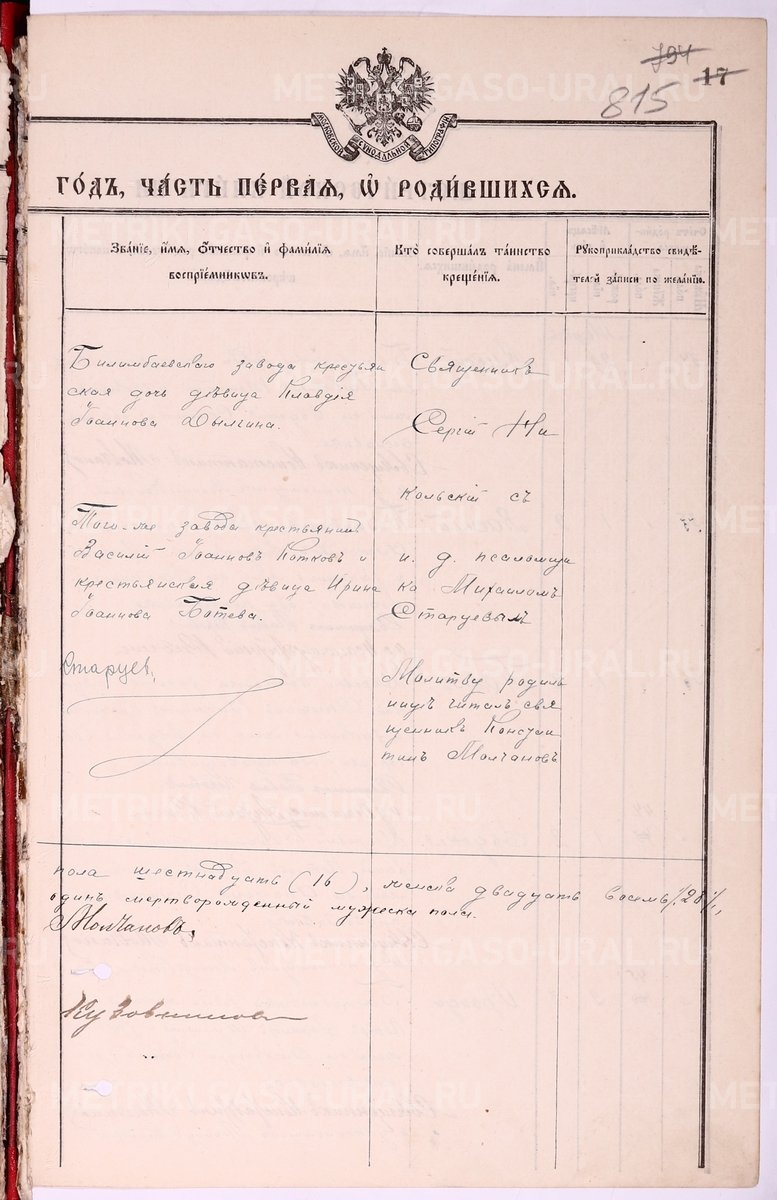 794
17
815
МОСКОВСКОЙ СѴНОДАЛЬНОЙ ТИПОГРАФІИ
ГО́ДЪ, ЧА́СТЬ ПЕ́РВАЯ, Ѡ҆ РОДИ́ВШИХСЯ.
Зва́нїе, и҆́мя, ѻ҆́тчество и҆ фами́лїя
воспрїе́мникѡвъ.
Кто̀ соверша́лъ та́инство
креще́нїя.
Рꙋкоприкла́дство свидѣ́-
телей за́писи по жела́нїю.
Билимбаевскаго завода крестьян
ская дочь дѣвица Клавдія
Іоаннова
Того-же завода крестьянинъ
Василій Іоанновъ Котковъ и
крестьянская дѣвица Ирина
Іоаннова Ботева.
Старцев
Священникъ
Сергій Ни
кольскій съ
и. д. псаломщи
ка Михаиломъ
Старцевымъ
Молитву родиль
ницѣ читалъ свя
щенникъ Констан
тинъ Молчановъ
пола шестнадцать (16), женска двадцать восемь /28/,
одинъ мертворожденный мужеска пола.
Молчановъ
METRIKI.GASO-URAL.RU